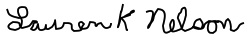 Lauren K Nelson